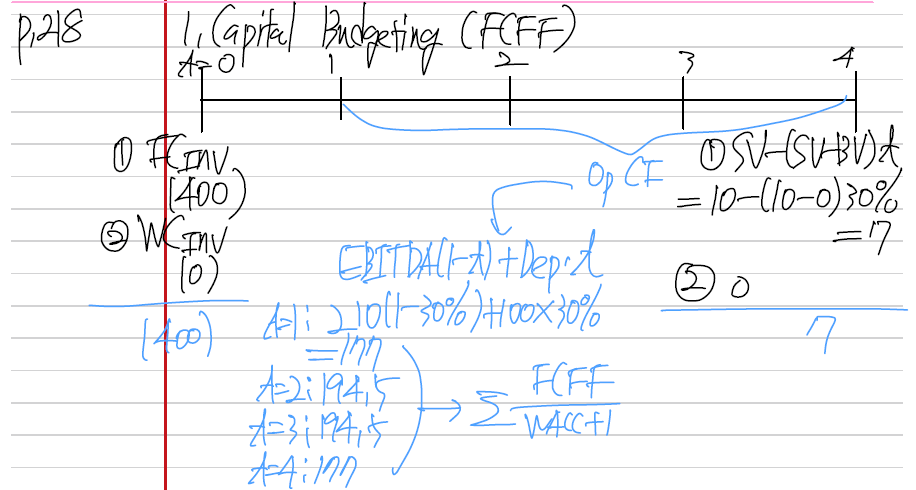 p.218
1. Capital Budgeting (FCFF)
t=0 1 2 3 4
① FCINV
(400)
② WCINV
(0)
(400)
Op CF
EBITDA(1-t)+Dep·t
t=1: 210(1-30%)+100×30%
=177
t=2: 194.5
t=3: 194.5
t=4: 177
→ Σ FCFF
WACC+1
① SV-(SV-BV)t
=10-(10-0)30%
=7
② 0
7